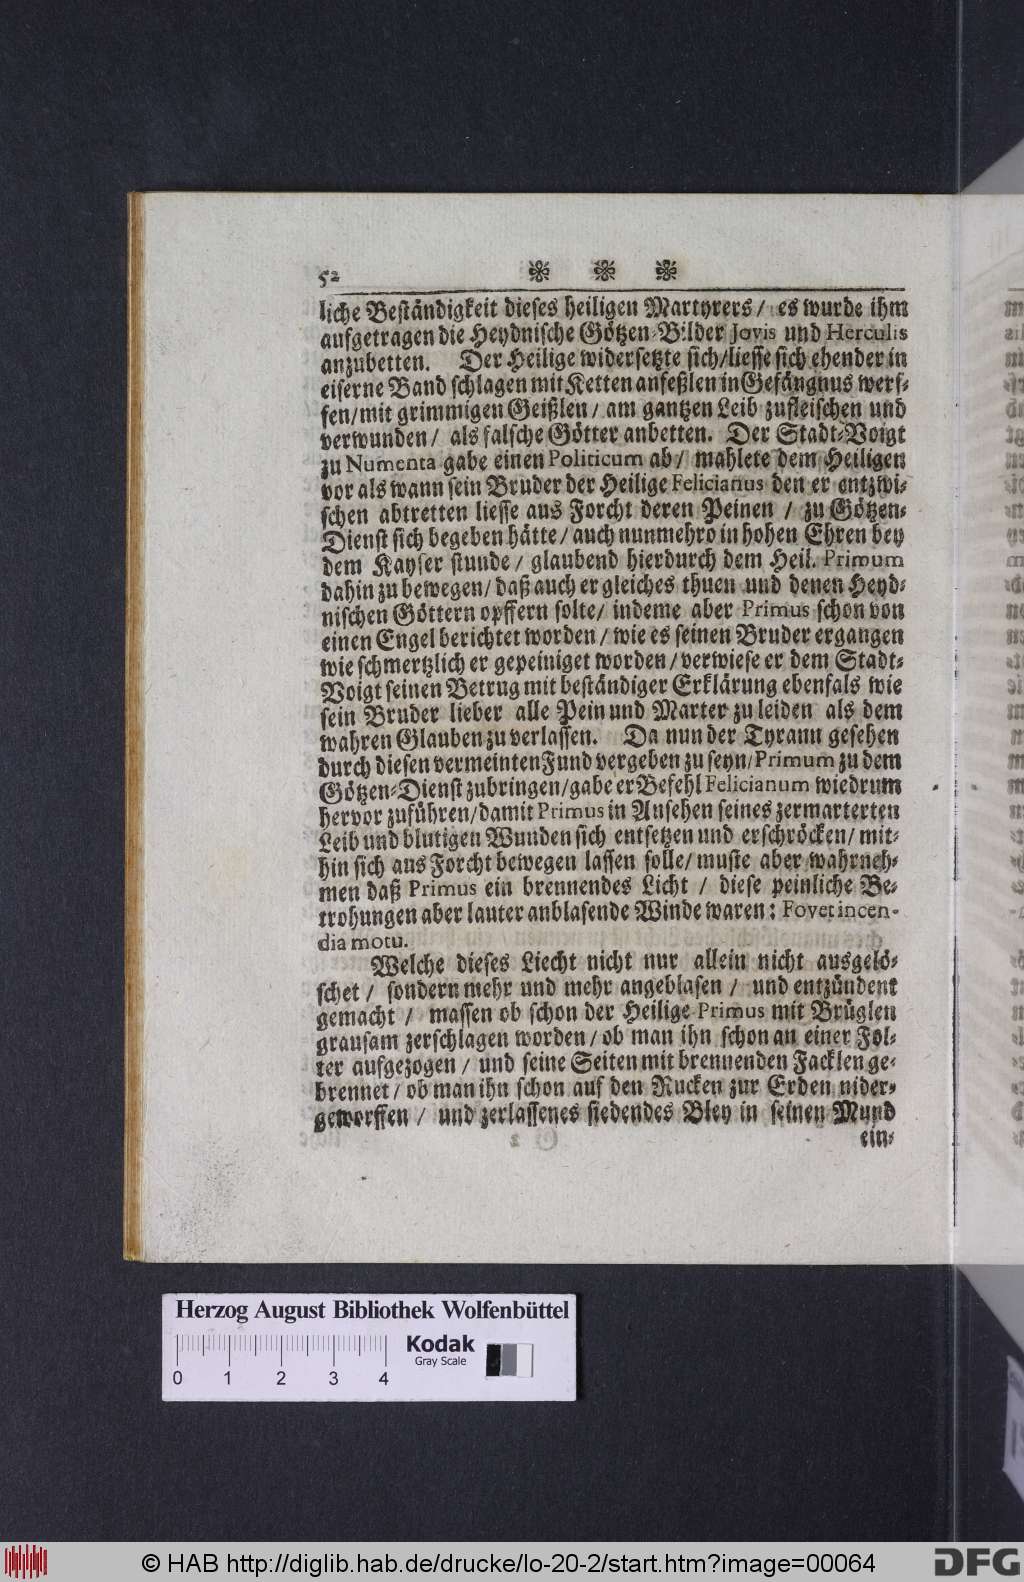 52
liche Beständigkeit dieses heiligen Martyrers / es wurde ihm
aufgetragen die Heydnische Götzen-Bilder Jovis und Herculis
anzubetten. Der Heilige widersetzte sich/liesse sich ehender in
eiserne Band schlagen mit Ketten anfeßlen in Gefängnus werf-
fen/mit grimmigen Geißlen / am gantzen Leib zufleischen und
verwunden / als falsche Götter anbetten. Der Stadt-Voigt
zu Numenta gabe einen Politicum ab / mahlete dem Heiligen
vor als wann sein Bruder der Heilige Felicianus den er entzwi-
schen abtretten liesse aus Forcht deren Peinen / zu Götzen-
Dienst sich begeben hätte / auch nunmehro in hohen Ehren bey
dem Kayser stunde / glaubend hierdurch dem Heil. Primum
dahin zu bewegen / daß auch er gleiches thuen und denen Heyd-
nischen Göttern opffern solte / indeme aber Primus schon von
einen Engel berichtet worden / wie es seinen Bruder ergangen
wie schmertzlich er gepeiniget worden / verwiese er dem Stadt-
Voigt seinen Betrug mit beständiger Erklärung ebenfals wie
sein Bruder lieber alle Pein und Marter zu leiden als dem
wahren Glauben zu verlassen. Da nun der Tyrann gesehen
durch diesen vermeinten Fund vergeben zu seyn / Primum zu dem
Götzen-Dienst zubringen / gabe er Befehl Felicianum wiedrum
hervor zuführen / damit Primus in Ansehen seines zermarterten
Leib und blutigen Wunden sich entsetzen und erschröcken / mit-
hin sich aus Forcht bewegen lassen solle / muste aber wahrneh-
men daß Primus ein brennendes Licht / diese peinliche Be-
trohungen aber lauter anblasende Winde waren: Fovet incen-
dia motu.
Welche dieses Liecht nicht nur allein nicht ausgelö-
schet / sondern mehr und mehr angeblasen / und entzündent
gemacht / massen ob schon der Heilige Primus mit Brüglen
grausam zerschlagen worden / ob man ihn schon an einer Fol-
ter aufgezogen / und seine Seiten mit brennenden Facklen ge-
brennet / ob man ihn schon auf den Rucken zur Erden nider-
geworffen / und zerlassenes siedendes Bley in seinen Mund
ein-
Herzog August Bibliothek Wolfenbüttel
Kodak
Gray Scale
0 1 2 3 4
© HAB http://diglib.hab.de/drucke/lo-20-2/start.htm?image=00064
DFG